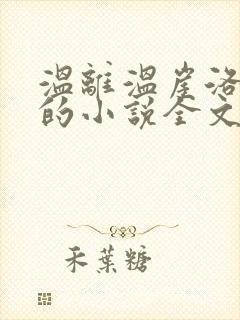 温離温崖洛
的小説全文
禾葉糖